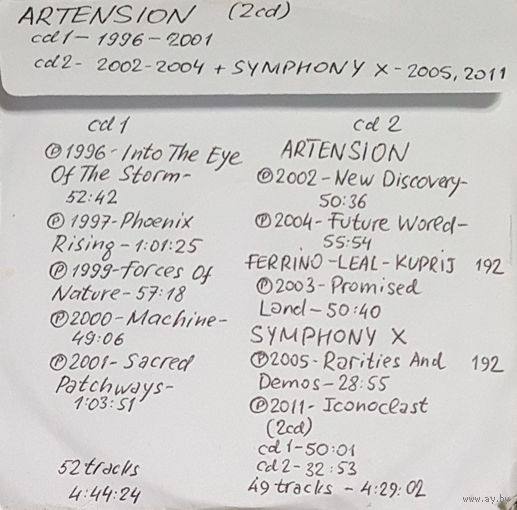 ARTENSION (2cd)
cd1-1996-2001
cd2- 2002-2004 + SYMPHONY X - 2005, 2011
cd 1
℗1996-Into The Eye
Of The Storm-
52:42
℗1997-Phoenix
Rising-1:01:25
℗1999-Forces Of
Nature-57:18
℗2000-Machine-
49:06
℗2001-Sacred
Patchways-
1:03:51
52 tracks
4:44:24
cd 2
ARTENSION
℗2002-New Discovery-
50:36
℗2004-Future Wored-
55:54
FERRINO-LEAL-KUPRIJ 192
℗2003-Promised
Land-50:40
SYMPHONY X
℗2005-Rarities And 192
Demos-28:55
℗2011-Iconoclast
(2cd)
cd1-50:01
cd2-32:53
49 tracks - 4:29:02
www.ay.by